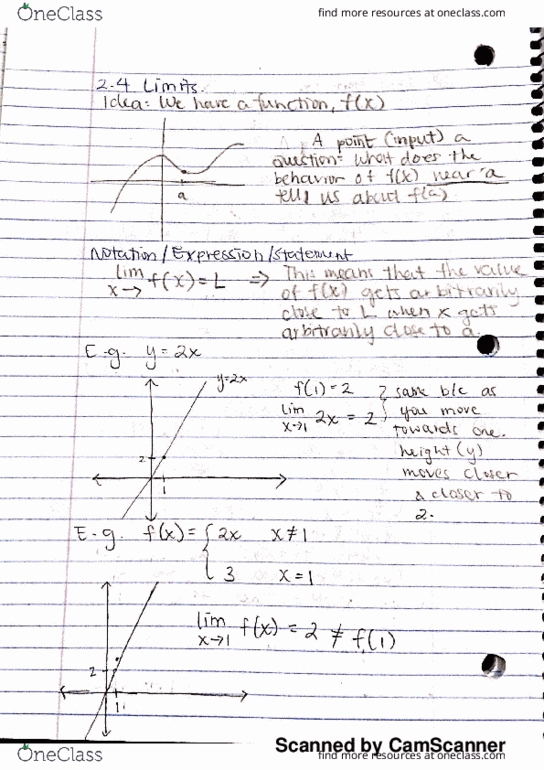 OneClass
find more resources at oneclass.com
2.4 Limits.
Idea: We have a function, f(x)
A point (input) a
question: what does the
behavior of f(x) near a
tell us about f(a)
a
Notation/Expression/Statement
lim f(x) = L ⇒ This means that the value
x→
of f(x) gets arbitrarily
close to L when x gets
arbitrarily close to a.
E.g. y = 2x
y=2x
f(1) = 2
lim 2x = 2
x→1
same b/c as
you move
towards one.
height (y)
moves closer
& closer to
2.
2
1
E.g. f(x) = { 2x x ≠ 1
3 x = 1
lim f(x) = 2 ≠ f(1)
x→1
2
1
Scanned by CamScanner
OneClass
find more resources at oneclass.com